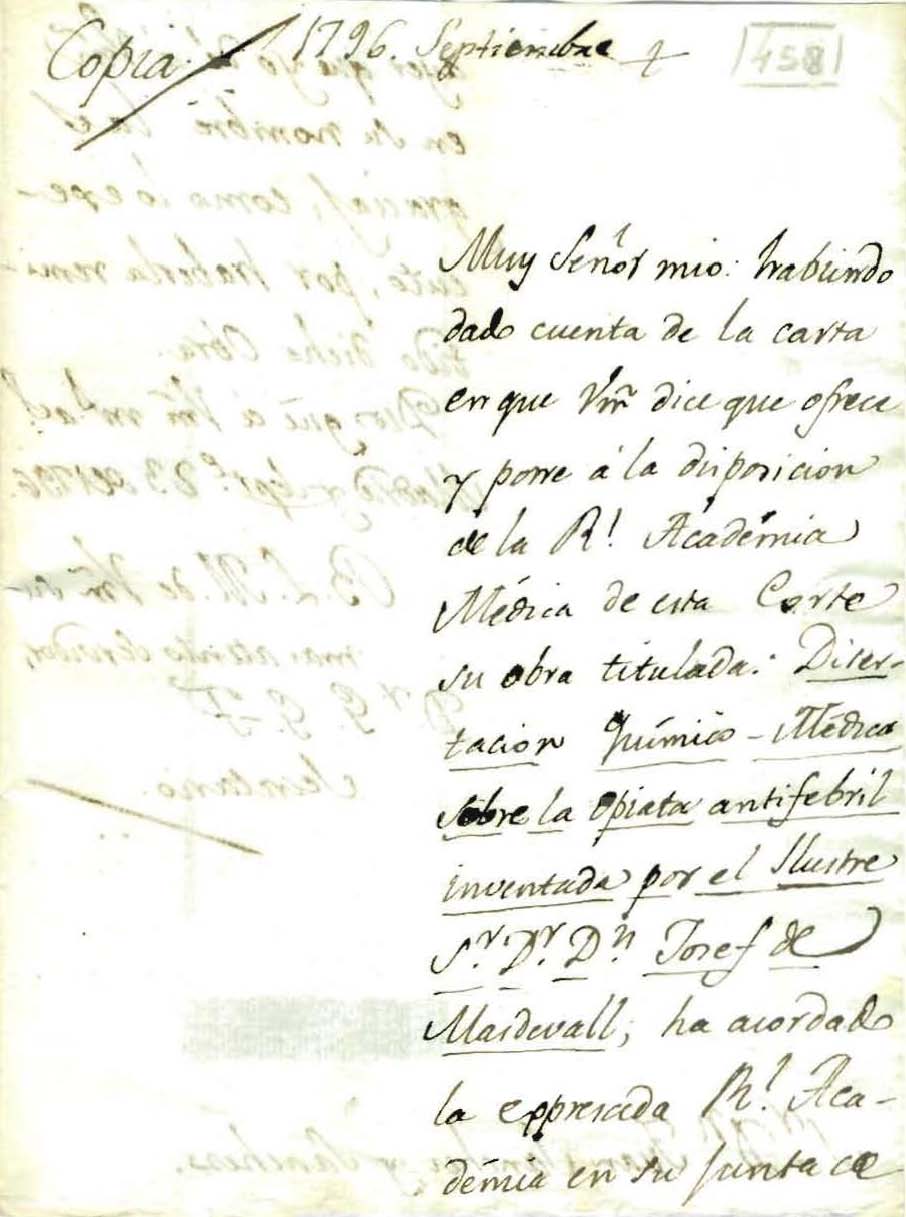 Copia. 1796. Septiembre
458
Muy Señor mio: habiendo
dado cuenta de la carta
en que Vm dice que ofrece
y pone á la disposicion
de la Rl. Académia
Médica de esta Corte
su obra titulada: Diser-
tacion Químico-Médica
sobre la opiata antifebril
inventada por el Ilustre
Sr. Dr. Dn Josef de
Masdevall; ha acordado
la expresada Rl. Aca-
démia en su Junta de